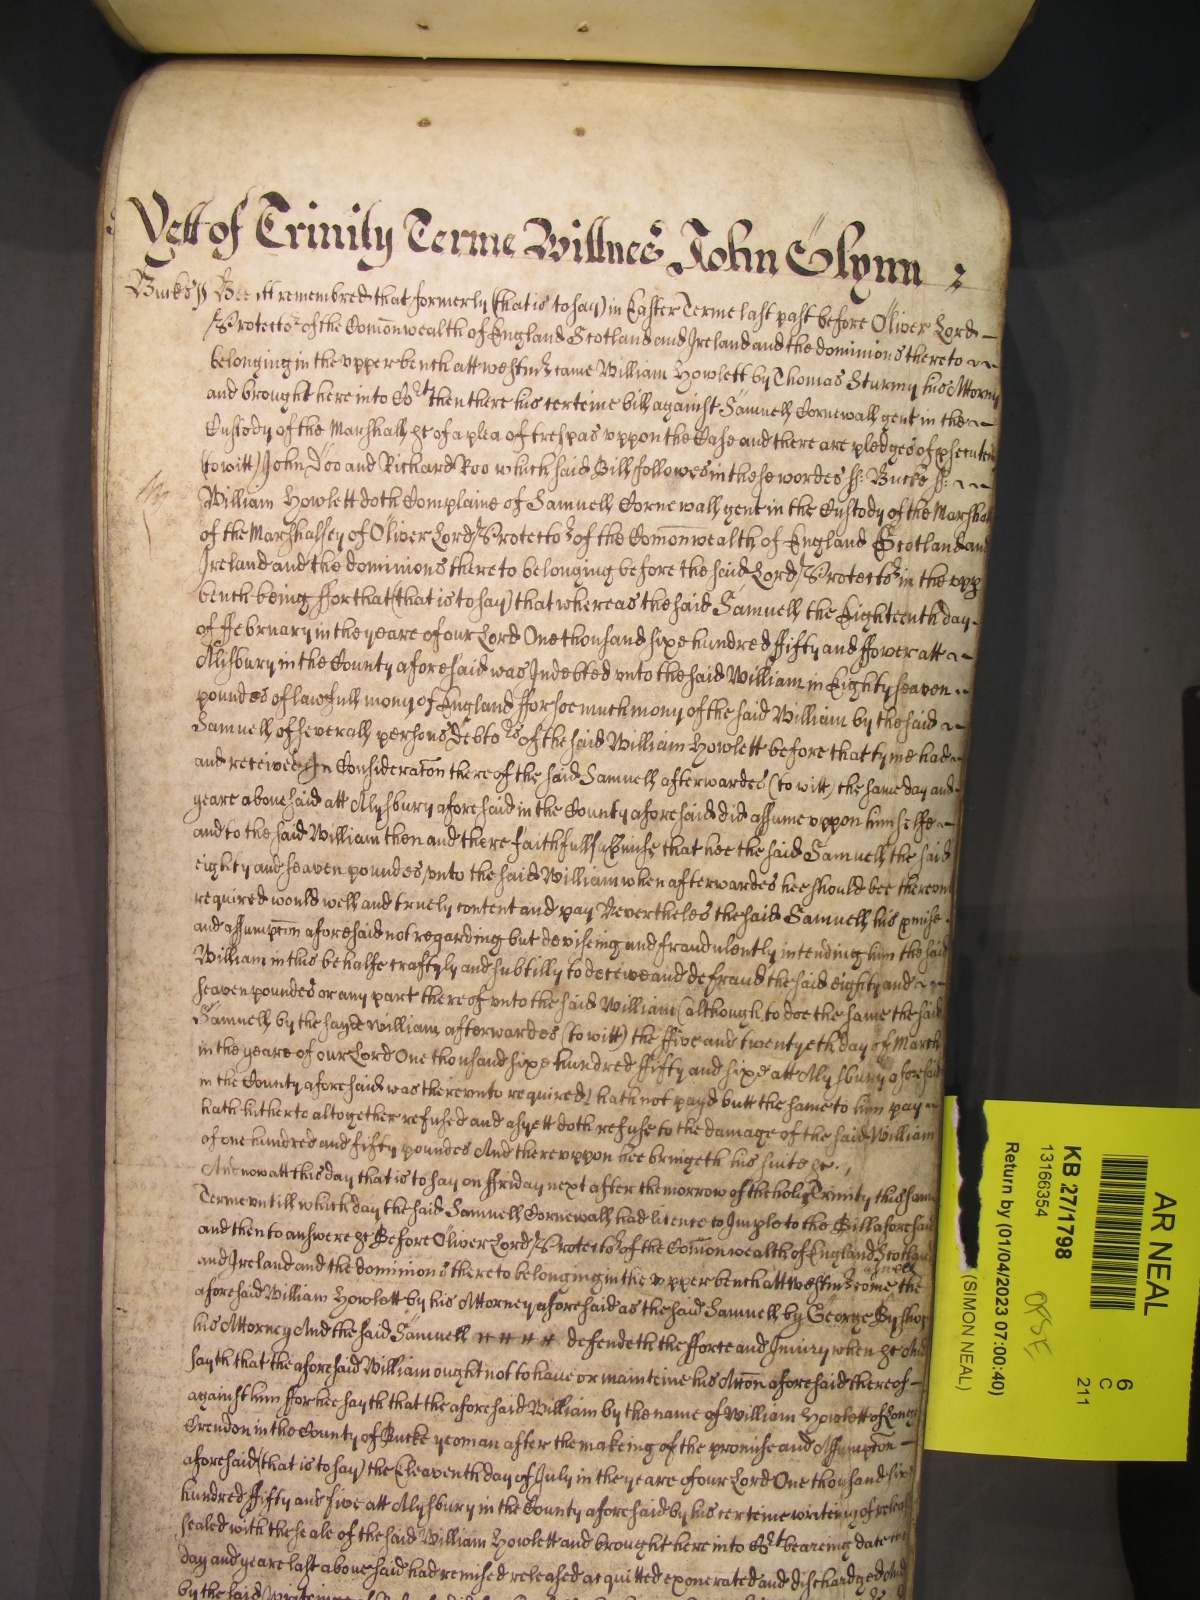 Yett of Trinity Terme Willnes John Glynn
Bucks ss Bee itt remembred that formerly (that is to say) in Easter Terme last past before Oliver Lord
Protector of the Comonwealth of England Scotland and Ireland and the dominions thereto
belonging in the upper bench att Westmr came William Howlett by Thomas Sturmy his Attorny
and brought here into Cort then there his certeine bill against Samuell Cornewall gent in the
Custody of the Marshall &c of a plea of trespas uppon the Case and there are pledges of psecuten
(to witt) John Doo and Richard Roo which said Bill followes in these wordes ss: Bucks ss:
William Howlett doth Complaine of Samuell Cornewall gent in the Custody of the Marshall
of the Marshallsey of Oliver Lord Protector of the Comonwealth of England Scotland and
Ireland and the dominions there to belonging before the said Lord Protector in the upp
bench being ffor that (that is to say) that whereas the said Samuell the Eighteenth day
of ffebruary in the yeare of our Lord One thousand sixe hundred ffifty and ffower att
Alisbury in the County aforesaid was Indebted unto the said William in Eighty seaven
poundes of lawfull mony of England ffor soe much mony of the said William by the said
Samuell of severall persons Debtors of the said William Howlett before that tyme had
and received In Consideraton there of the said Samuell afterwardes (to witt) the same day and
yeare abovesaid att Alysbury aforesaid in the County aforesaid did assume uppon him selfe
and to the said William then and there faithfully pmise that hee the said Samuell the said
eighty and seaven poundes unto the said William when afterwardes hee should bee thereunto
required would well and truely content and pay Nevertheles the said Samuell his pmise
and assumpcon aforesaid not regarding but deviseing and fraudulently intending him the said
William in this behalfe craftyly and subtilly to deceive and defraud the said eighty and
seaven poundes or any part there of unto the said William (although to doe the same the said
Samuell by the sayde William afterwardes (to witt) the ffive and twentyeth day of March
in the yeare of our Lord One thousand sixe hundred ffifty and sixe att Alysbury aforesaid
in the County aforesaid was thereunto required) hath not payd butt the same to him pay
hath hitherto altogether refused and as yett doth refuse to the damage of the said William
of one hundred and fifty poundes And thereuppon hee bringeth his suite &c.
And now att this day that is to say on ffriday next after the morrow of the holy Trinity this same
Terme untill which day the said Samuell Cornewall had licence to Imple to the Bill aforesaid
and then to answere &c Before Oliver Lord Protector of the Comonwealth of England Scotland
and Ireland and the dominions there to belonging in the upper bench att Westmr come aswell the
aforesaid William Howlett by his Attorney aforesaid as the said Samuell by George Bysshop
his Attorney And the said Samuell defendeth the fforce and Iniury when &c And
sayth that the aforesaid William ought not to have or mainteine his Accon aforesaid thereof
against him ffor hee sayth that the aforesaid William by the name of William Howlett of Long
Crendon in the County of Bucks yeoman after the makeing of the promise and Assumpcon
aforesaid (that is to say) the Eleaventh day of July in the yeare of our Lord One thousand six
hundred ffifty and five att Alysbury in the County aforesaid by his certeine writeing of release
sealed with the seale of the said William Howlett and brought here into Cort beareing date the
day and yeare last abovesaid had remised released acquitted exonerated and discharged And
by the said
AR NEAL
6
C
211
KB 27/1798
13166354
Return by (01/04/2023 07:00:40)
(SIMON NEAL)